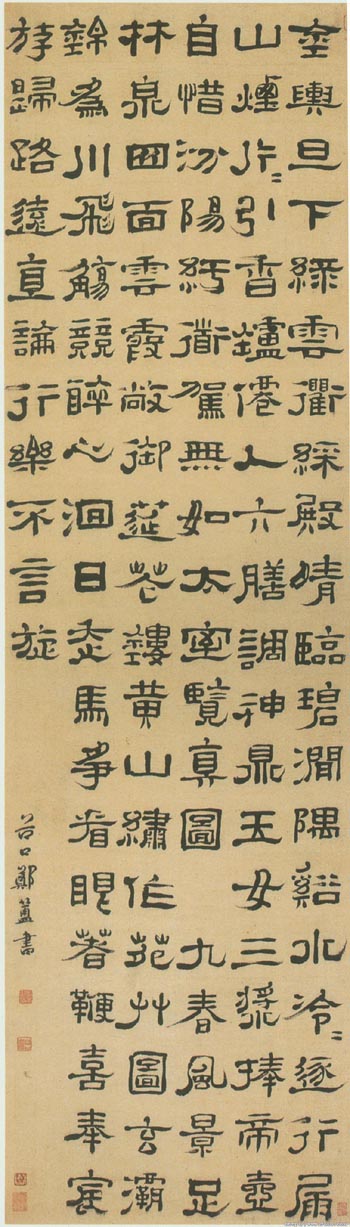 金輿旦下綠雲衢綵殿晴臨碧澗隅谿水泠々逐行屚
山煙片々引香爐僊人六膳調神鼎玉女三漿捧帝壺
自惜汾陽紆道駕無如太室覽真圖 九春風景足
林泉四面雲霞敞御筵花鏤黃山繡作苑艸圖玄灞
錦為川飛觴競醉心洄日走馬爭看眼著鞭喜奉宸
遊歸路遠直論行樂不言旋
谷口鄭簠書